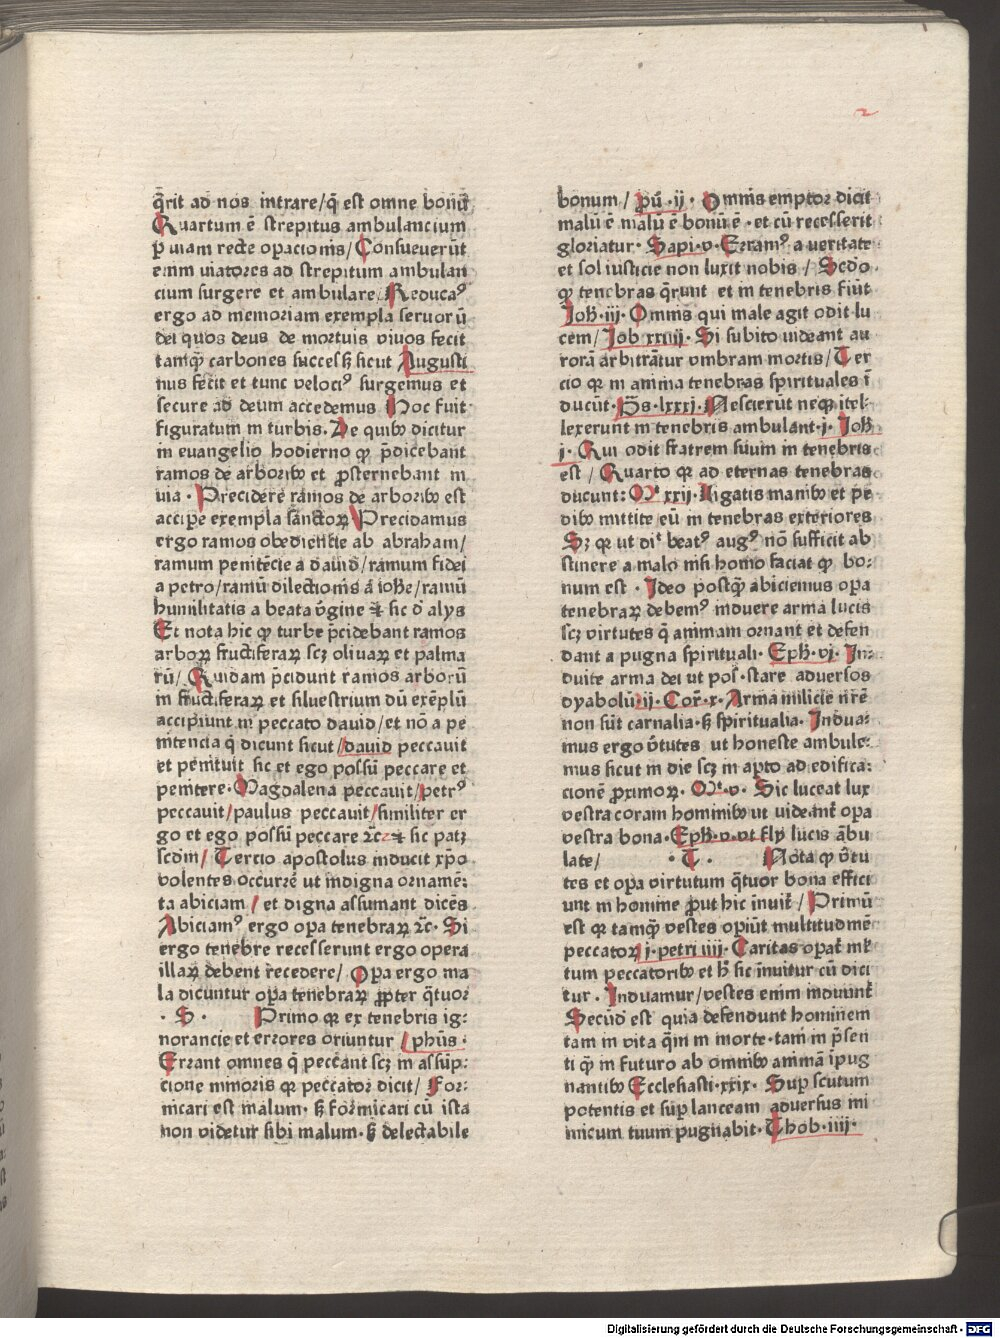 2
q̄rit ad nos intrare/q̄ est omne bonū
Quartum ē strepitus ambulancium
p̱ uiam recte opacionis/Consueuerūt
enim uiatores ad strepitum ambulan
cium surgere et ambulare/Reducaꝰ
ergo ad memoriam exempla seruorū
dei quos deus de mortuis viuos fecit
tamq̄ carbones succesß sicut Augusti
nus fecit et tunc velociꝰ surgemus et
secure ad deum accedemus Hoc fuit
figuratum in turbis. De quibꝰ dicitur
in euangelio hodierno qꝫ p̄dicebant
ramos de arboribꝰ et ꝓsternebant in
uia · Precidere ramos de arboribꝰ est
accipe exempla sanctoꝝ Precidamus
ergo ramos obediencie ab abraham/
ramum penitēcie a dauid/ramum fidei
a petro/ramū dilectionis a iohe/ramū
humilitatis a beata v̄gine ⁊ sic d̄ alys
Et nota hic qꝫ turbe p̄cidebant ramos
arboꝝ fructiferaꝝ scꝫ oliuaꝝ et palma
rū/Quidam p̄cidunt ramos arborū
in fructiferaꝝ et siluestrium dū exēplū
accipiunt in peccato dauid/et nō a pe
nitencia q̄ dicunt sicut/dauid peccauit
et penituit sic et ego possū peccare et
penitere·Magdalena peccauit/petrꝰ
peccauit/paulus peccauit/similiter er
go et ego possū peccare ⁊c ⁊ sic patꝫ
scd̄m/ Tercio apostolus inducit xp̄o
volentes occurrē ut indigna ornamē:
ta abiciam/et digna assumant dicēs
Abiciamꝰ ergo opa tenebraꝝ ⁊c· Si
ergo tenebre recesserunt ergo opera
illaꝝ debent recedere/ Opa ergo ma
la dicuntur opa tenebraꝝ ꝓpter q̄tuor
· S · Primo qꝛ ex tenebris ig:
norancie et errores oriuntur/phūs·
Errant omnes q̄ peccant scꝫ in assūp:
cione minoris qꝛ peccator dicit/For:
nicari est malum· ß fornicari cū ista
non videtur sibi malum·ß delectabile
bonum/ pū ·ij· Omnis emptor dicit
malū ē malū ē bonū ē · et cū recesserit
gloriatur· Sapi·v·Erramꝰ a ueritate
et sol iusticie non luxit nobis / Scdo
qꝫ tenebras q̄runt et in tenebris fiūt
Joh·iij·Omnis qui male agit odit lu
cem/Job xxiiij· Si subito uideant au
rorā arbitrātur vmbram mortis/Ter
cio qꝛ in anima tenebras spirituales ī
ducūt·P̄s·lxxxj·Nescierūt neqꝫ itel
lexerunt in tenebris ambulant·j·Joh
j·Qui odit fratrem suum in tenebris
est /Quarto qꝛ ad eternas tenebras
ducunt:Mᵗ xxij·Ligatis manibꝰ et pe
dibꝰ mittite eū in tenebras exteriores
Sꝫ qꝛ ut diᵗ beatꝰ augꝰ nō sufficit ab
stinere a malo nisi homo faciat qꝫ bo:
num est · Ideo postq̄ abiciemus opa
tenebraꝝ debemꝰ induere arma lucis
scꝫ virtutes q̄ animam ornant et defen
dant a pugna spirituali· Eph·vj·In:
duite arma dei ut posˢ·stare aduersos
dyabolū·ij·Cor·x·Arma milicie nr̄e
non sūt carnalia·ß spiritualia· Indua:
mus ergo v̄tutes ut honeste ambule:
mus sicut in die scꝫ in apto ad edifica:
cionē proximoꝝ·Mᵗ·v· Sic luceat lux
vestra coram hominibꝰ ut uideānt opa
vestra bona·Eph·v·vt fily lucis ābu
late/ · T · Nota qꝫ v̄tu
tes et opa virtutum q̄tuor bona effici
unt in homine ꝓut hic inuit̄/Primū
est qꝛ tamq̄ vestes opiūt multitudinē
peccatoꝝ j·petri iiij·Caritas opat̄ ml̄
tum peccatoribꝰ et h̄ sic īnuitur cū dici
tur · Induamur/vestes enim induunt̄
Secūd̄ est quia defendunt hominem
tam in vita q̄m in morte·tam in p̄sen
ti q̄ in futuro ab omnibꝰ animā īpug
nantibꝰ Ecclesiasti·xxix· Sup scutum
potentis et sup lanceam aduersus ini
micum tuum pugnabit·Thob·iiij·
Digitalisierung gefördert durch die Deutsche Forschungsgemeinschaft · DFG